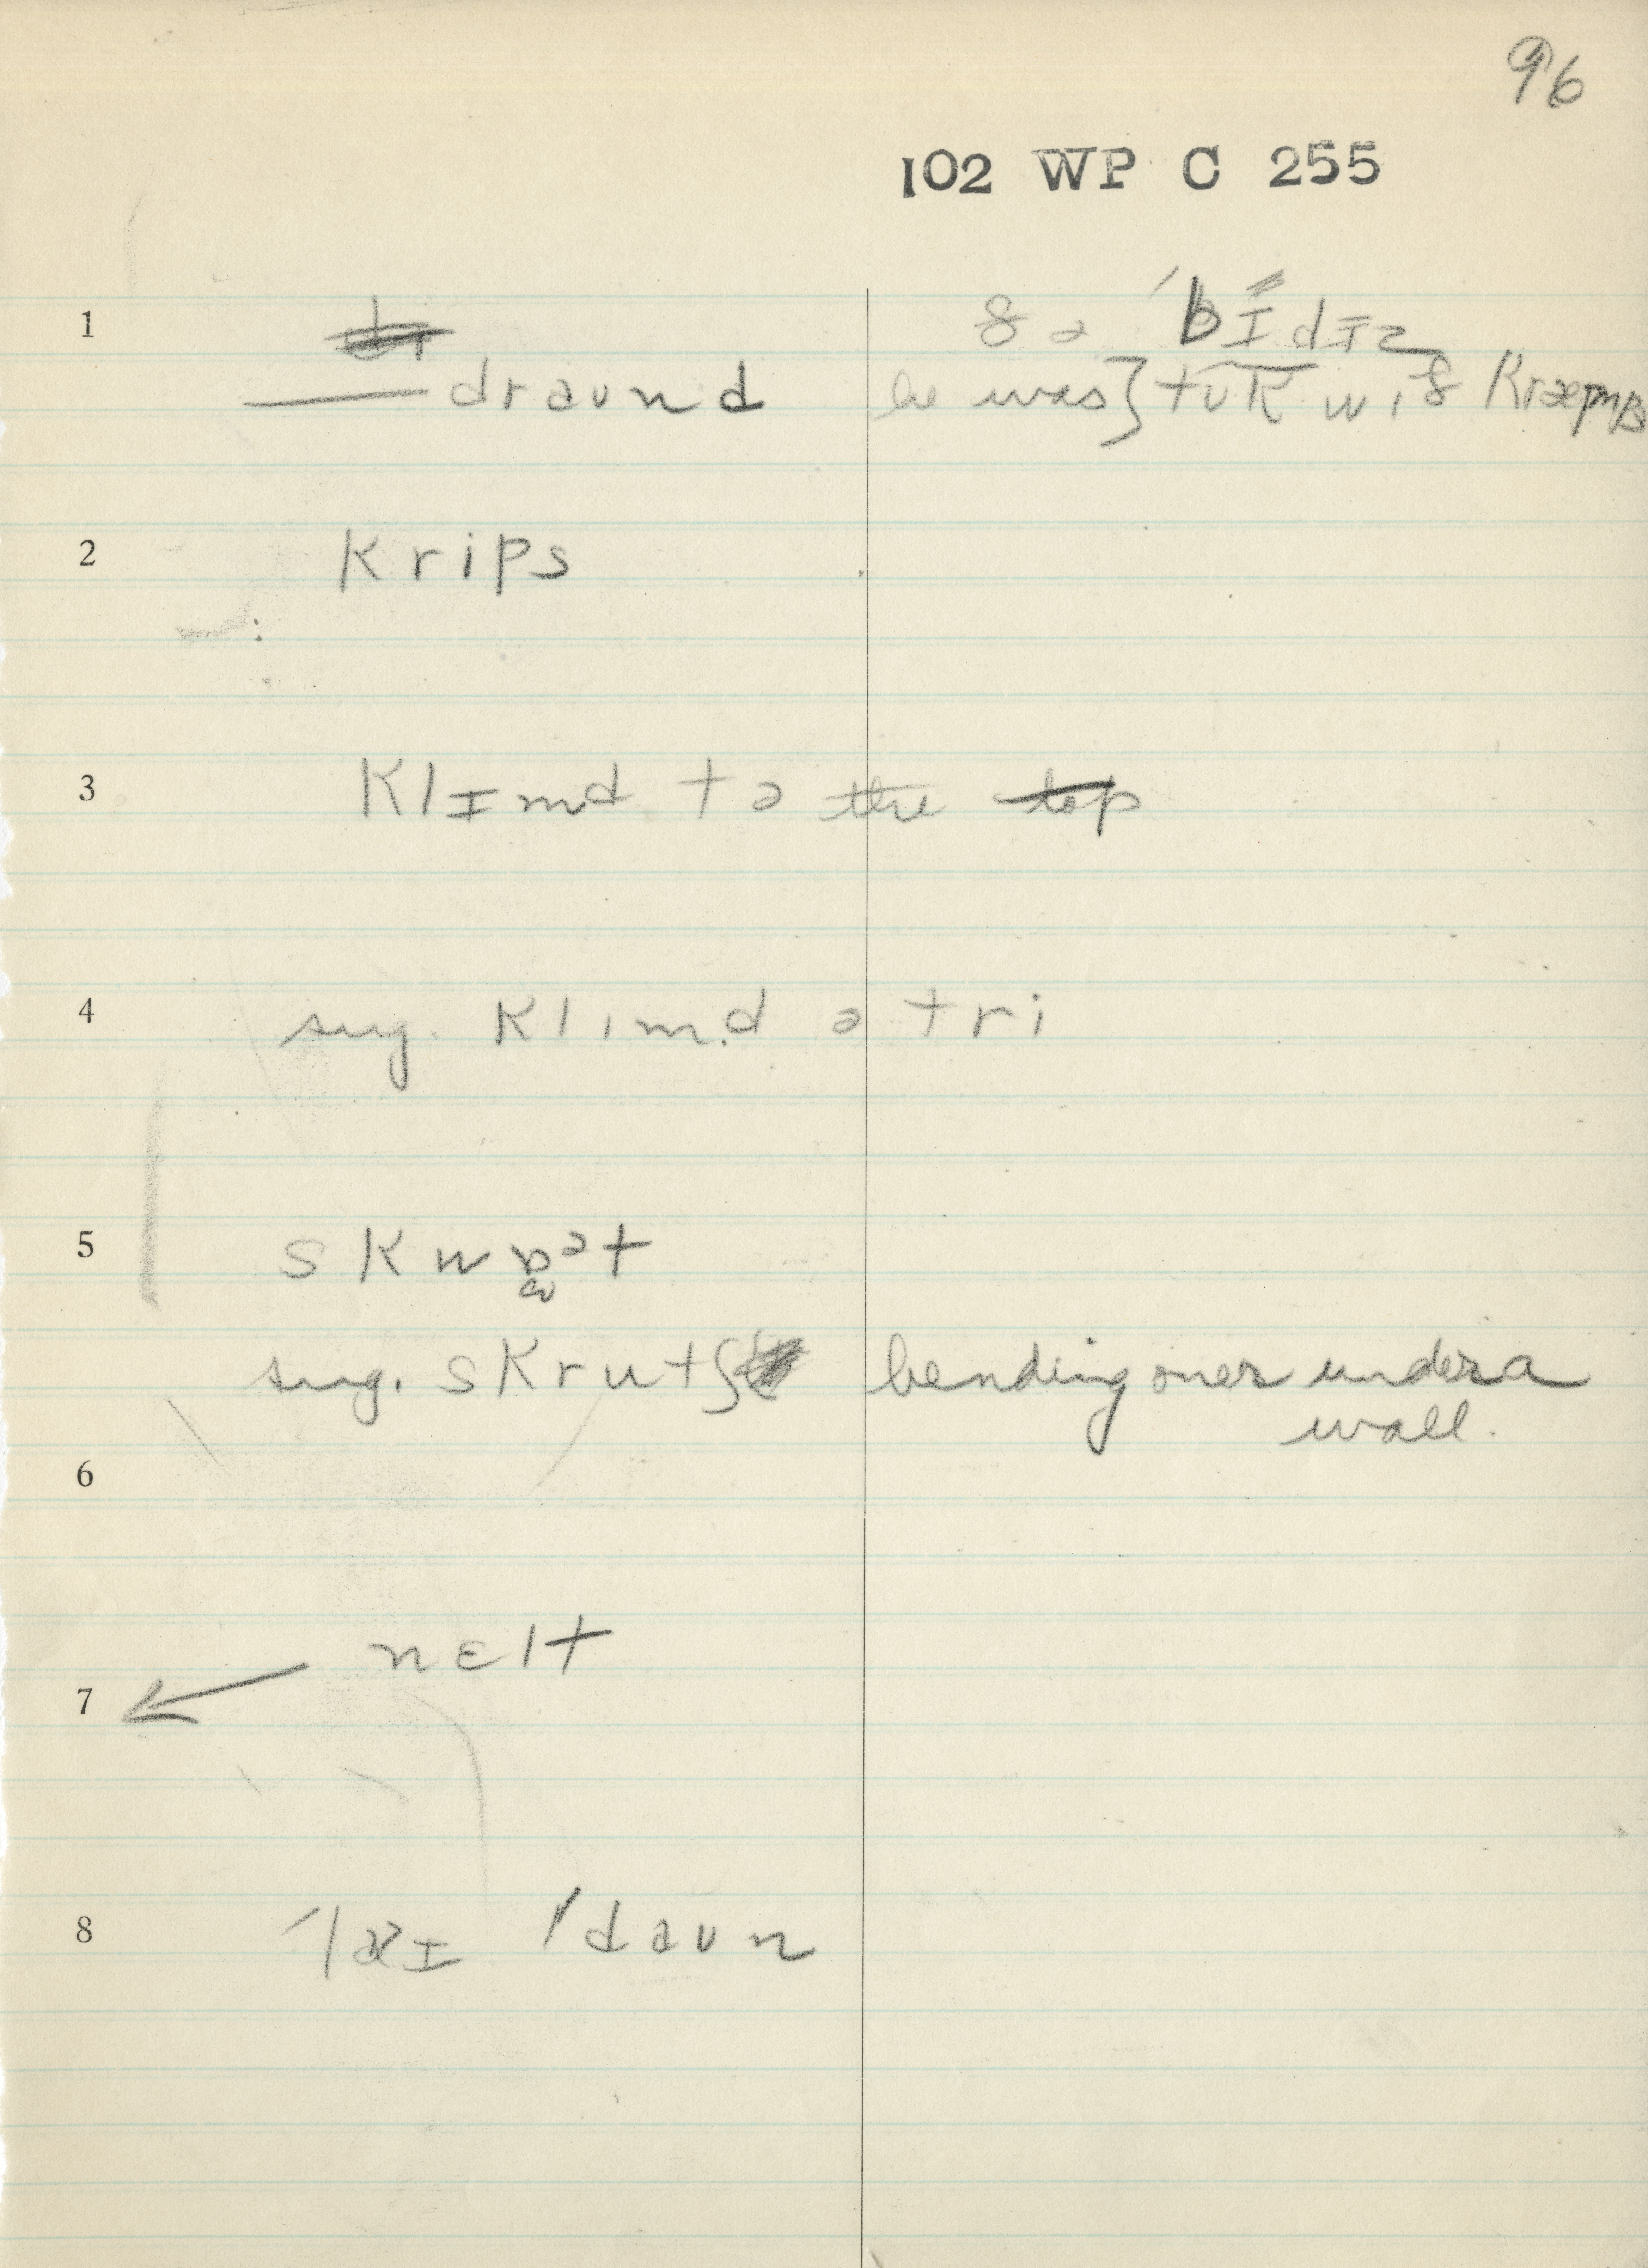 96
102 WP C 255
1 ðə ˈbɪdɪz
draund he was} tʊk wɪð kræmps
2 krips
3 klɪmd tə the top
4 sug. klɪmd ə tri
5 skwɒᵊt
sug. skrutʃ bending over under a
wall.
6
7 nɛlt
8 ˈlaɪ ˈdaʊn